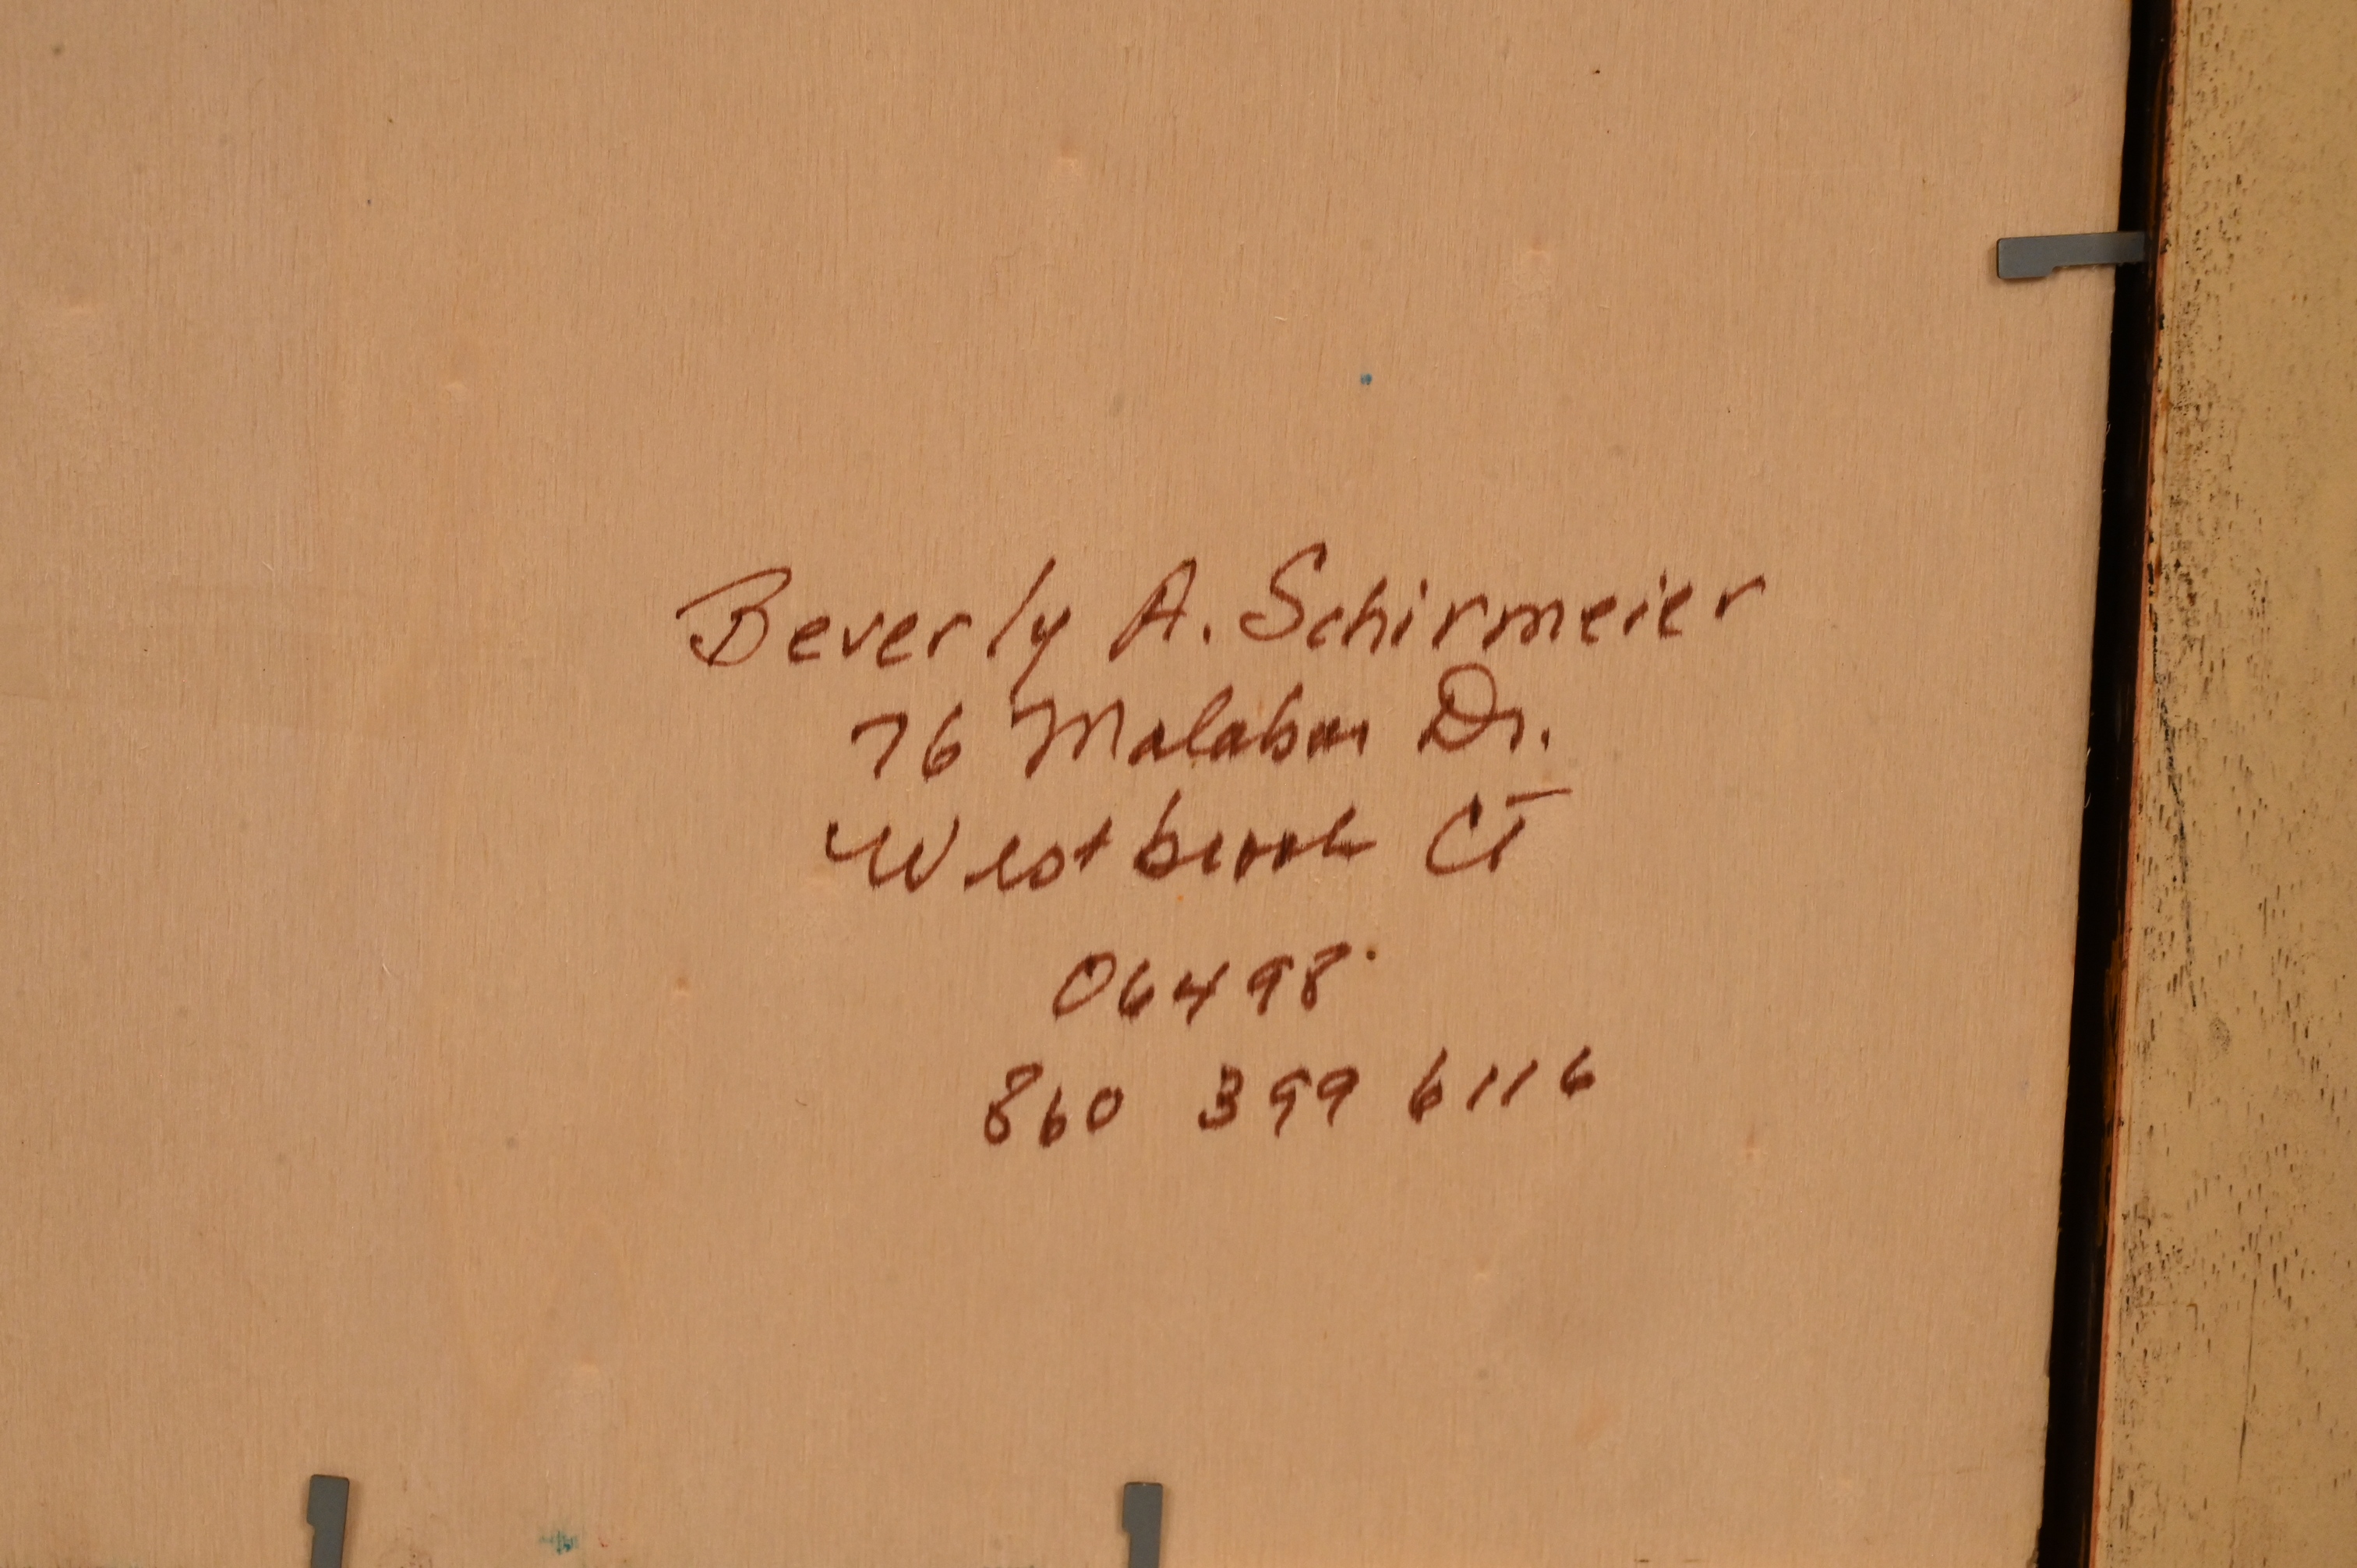 Beverly A. Schirmeier
76 Malabar Dr.
Westbrook CT
06498
860 399 6116